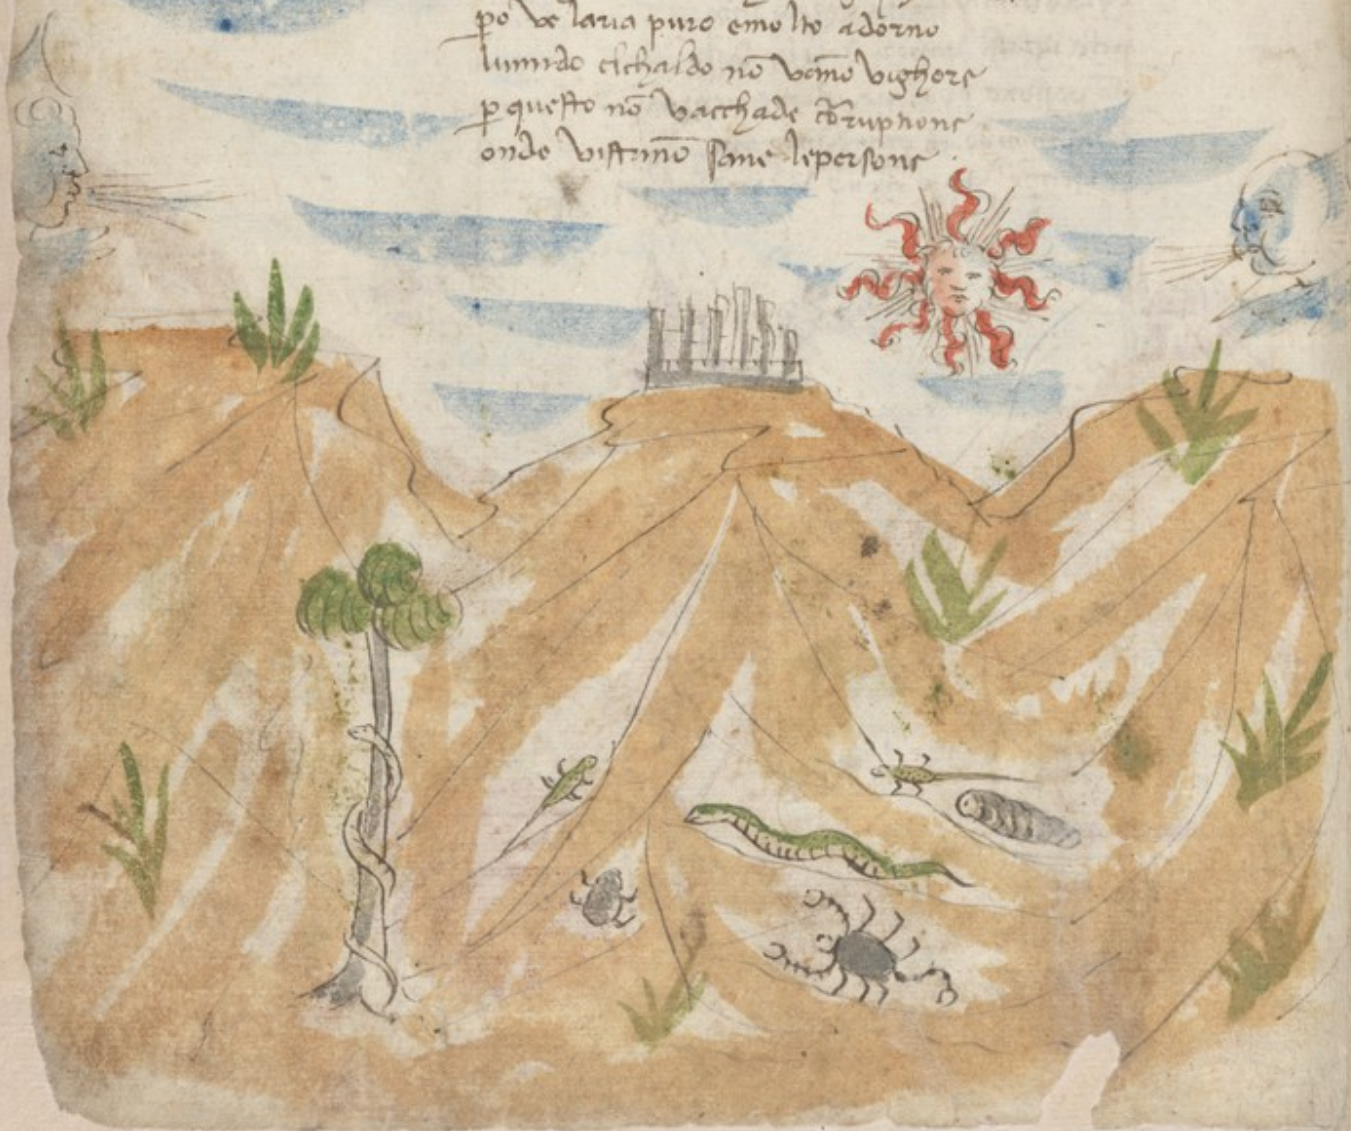 po ve laria puro emolto adorno
lumido elchaldo nō vēmo vighore
p questo nō vacchade cōruptione
onde vistāno sane lepersone